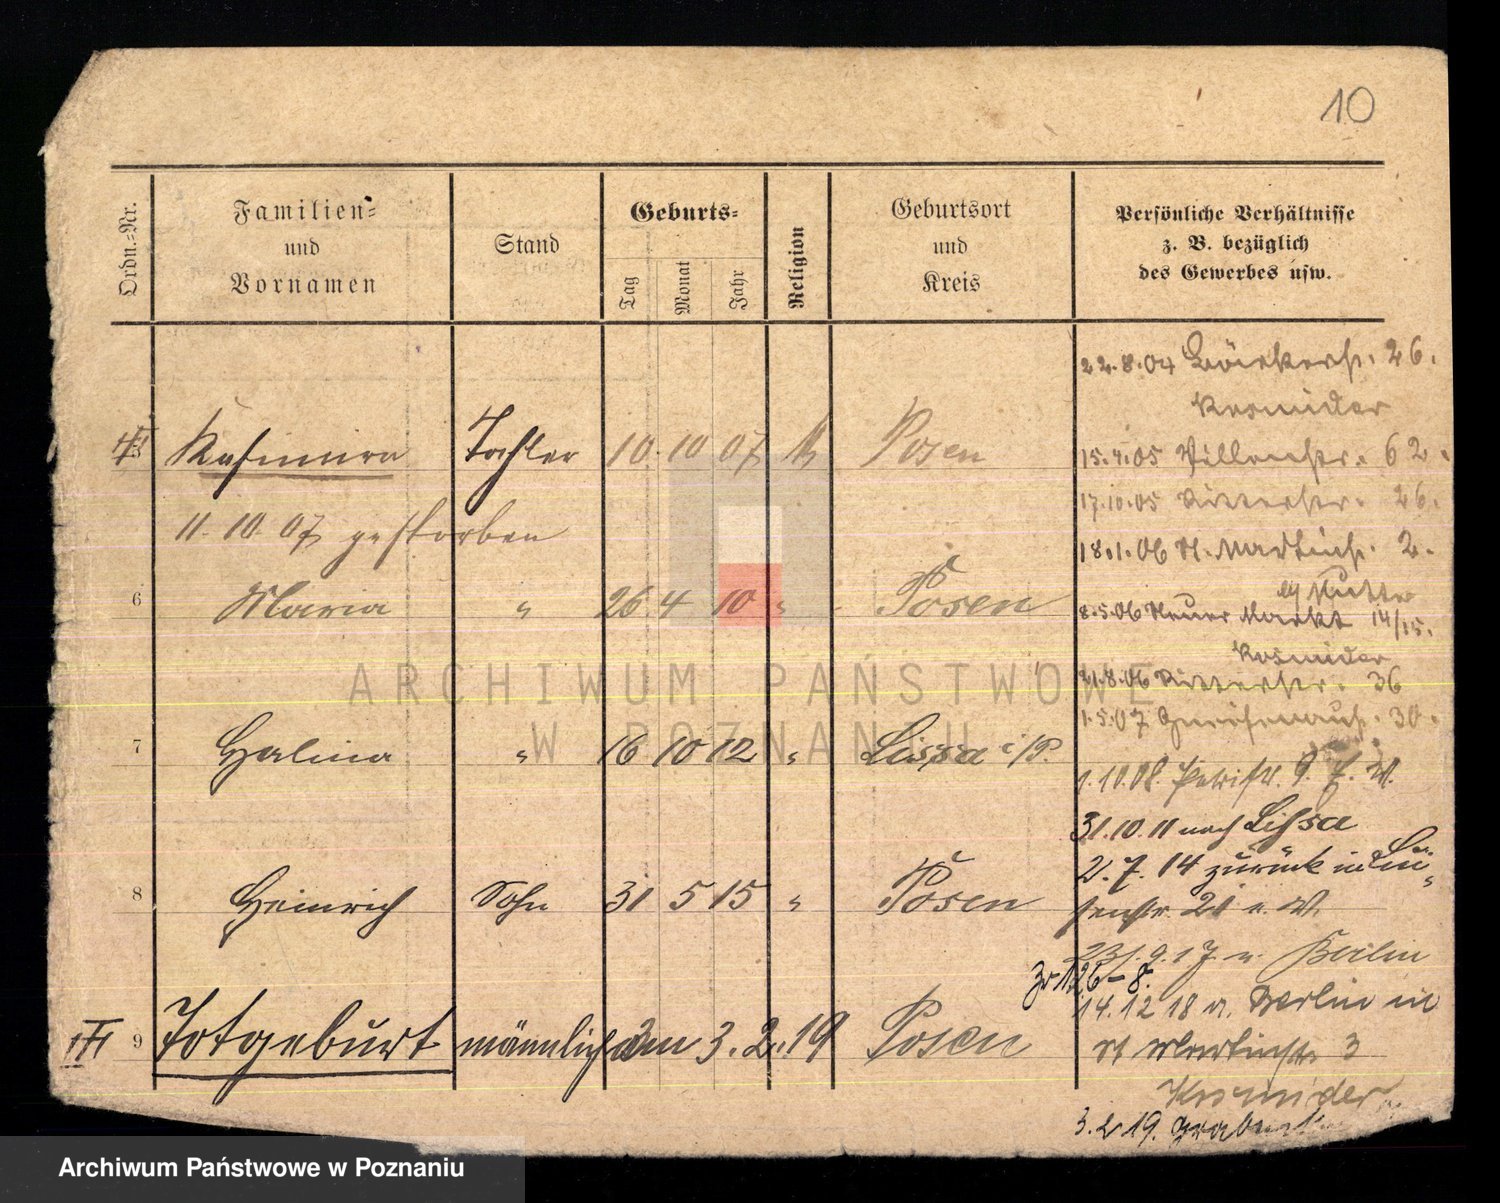 10
Ordn.-Nr.
Familien-
und
Vornamen
Stand
Geburts-
Tag
Monat
Jahr
Religion
Geburtsort
und
Kreis
Persönliche Verhältnisse
z. B. bezüglich
des Gewerbes usw.
Kasimira Tochter 10 10 07 Posen
11. 10. 07 gestorben
6 Maria " 26 4 10 " Posen
7 Halina " 16 10 12 " Lissa i/P.
8 Heinrich Sohn 31 5 15 " Posen
9 Totgeburt männlich am 3. 2. 19 Posen
22.8.04 Bäckerstr. 26.
Kosmider
15.4.05 Villenstr. 62.
17.10.05 Ritterstr. 26.
18.1.06 St. Martinstr. 2.
Mutter
8.5.06 Neuer Markt 14/15.
Kosmider
21.8.06 Ritterstr. 36
1.5.07 Gneisenaustr. 30.
1.10.08. Petristr. 9.
31.10.11 nach Lissa
2.7.14 zurück in Lui-
senstr. 21
23.9.17 n. Berlin
Zr 126-8.
14.12.18 v. Berlin in
St Martinstr. 3
Kosmider
3.2.19.
ARCHIWUM PAŃSTWOWE
W POZNANIU
Archiwum Państwowe w Poznaniu